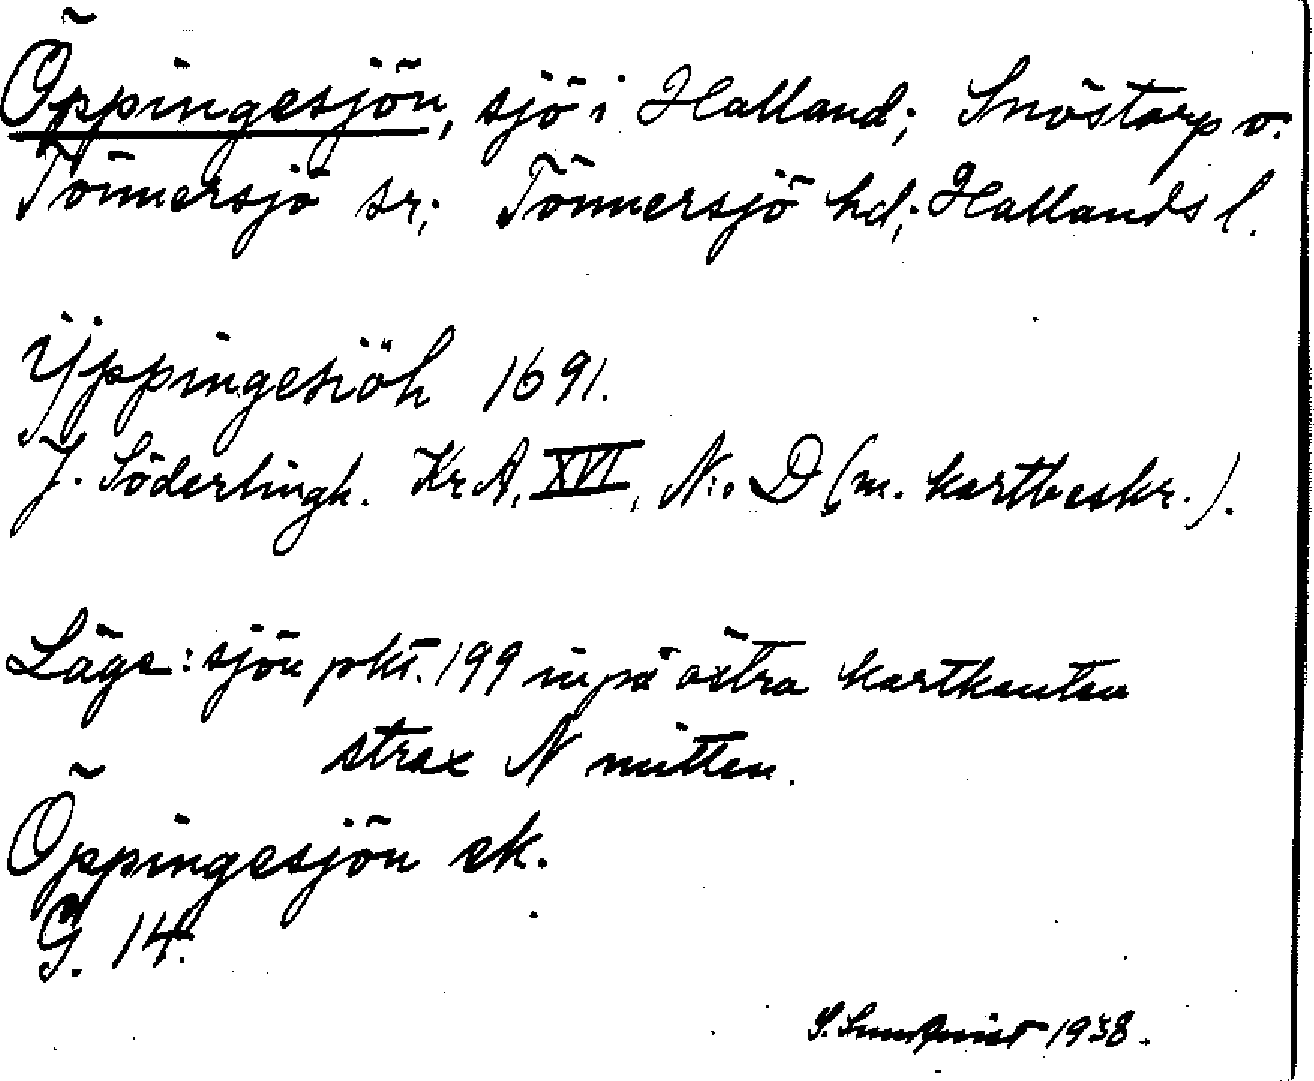 Öppingesjön, sjö i Halland; Snöstorp o.
Tönnersjö sr; Tönnersjö hd; Hallands l.
Yppingesiöh 1691.
J. Söderlingh. KrA, XVI, N:o D (m. kartbeskr.).
Läge: sjön pkt. 199 inpå östra kartkanten
strax N mitten.
Öppingesjön ek.
G. 14.
S. Sundqvist 1938.